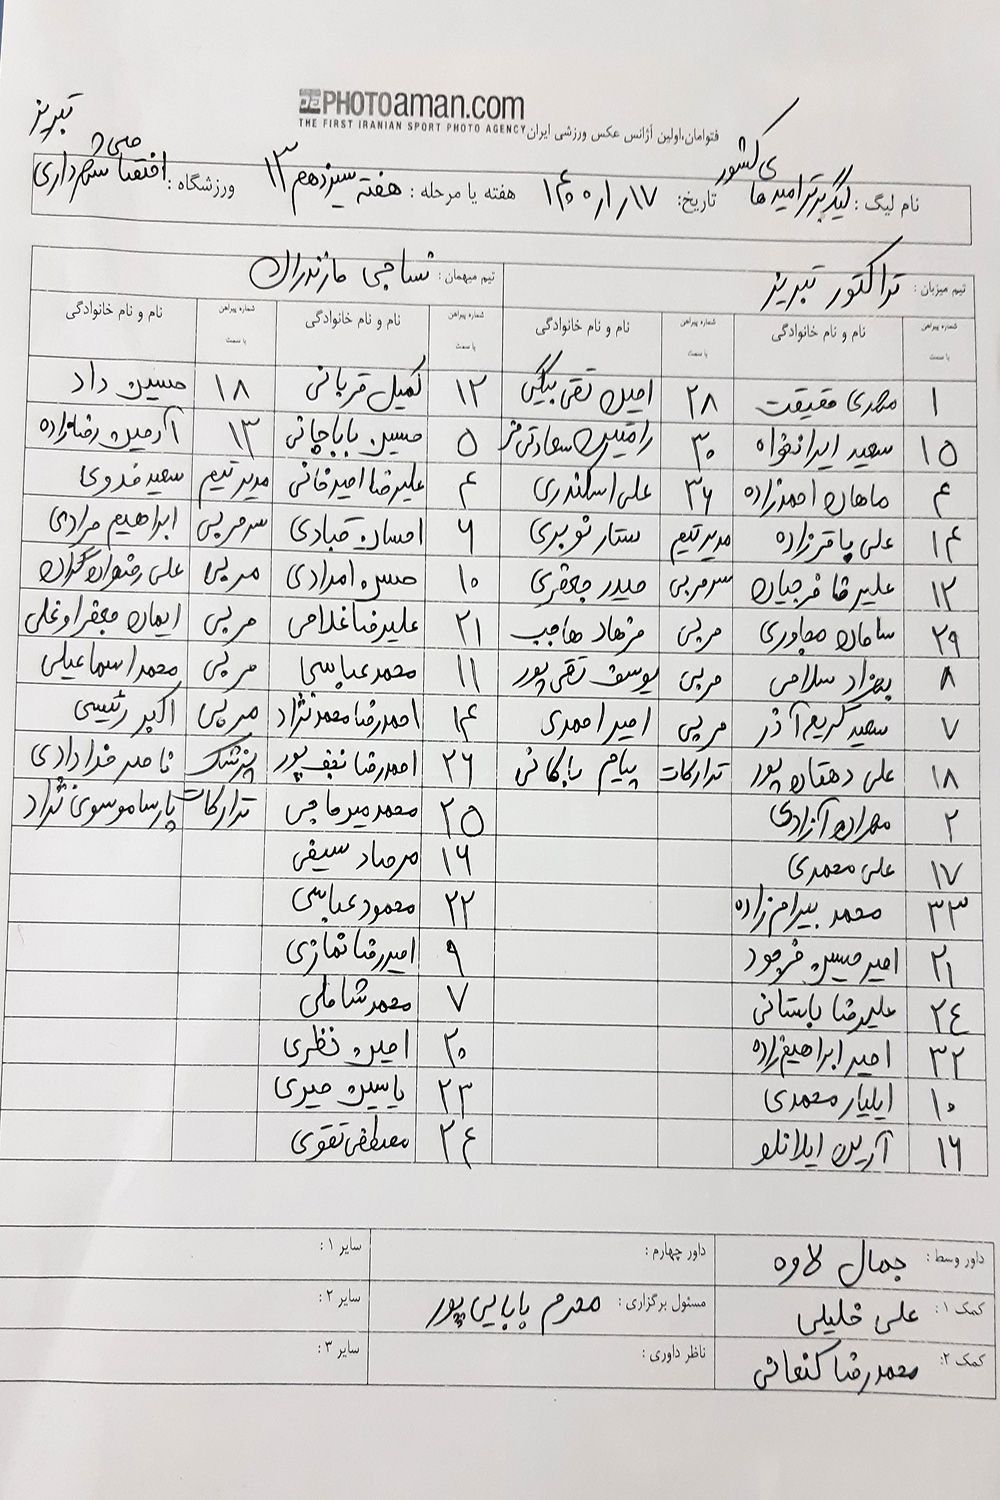 PHOTOaman.com
THE FIRST IRANIAN SPORT PHOTO AGENCY
فتوامان،اولین آژانس عکس ورزشی ایران
نام لیگ : لیگ برتر امیدهای کشور تاریخ: ۱۴۰۰/۱/۱۷ هفته یا مرحله : هفته سیزدهم ۱۳ ورزشگاه : شهرداری تبریز
تیم میزبان : تراکتور تبریز تیم میهمان : نساجی مازندران
شماره پیراهن یا سمت نام و نام خانوادگی شماره پیراهن یا سمت نام و نام خانوادگی شماره پیراهن یا سمت نام و نام خانوادگی شماره پیراهن یا سمت نام و نام خانوادگی
۱ مهدی حقیقت ۲۸ امین تقی بیگی ۱۲ کمیل قربانی ۱۸ حسین داد
۱۵ سعید ایرانخواه ۳۰ رامتین سعادتی فر ۵ حسین باباجانی ۱۳ آرمین رضازاده
۴ ماهان احمدزاده ۳۶ علی اسکندری ۴ علیرضا امیرخانی مدیر تیم سعید فدوی
۱۴ علی باقرزاده مدیر تیم ستار نوبری ۶ احسان قبادی سرمربی ابراهیم مرادی
۱۲ علیرضا فرجیان سرمربی حیدر جعفری ۱۰ حسن امدادی مربی علی رضوان
۲۹ سامان مجاوری مربی فرهاد حاجب ۲۱ علیرضا غلامی مربی ایمان جعفراوغلی
۸ بهزاد سلامی مربی یوسف تقی پور ۱۱ محمد عباسی مربی محمد اسماعیلی
۷ سعید کریم آذر مربی امیر احمدی ۱۴ احمدرضا محمدنژاد مربی اکبر رئیسی
۱۸ علی دهقان پور تدارکات پیام بابکانی ۲۶ احمدرضا نجف پور پزشک ناصر خدادادی
۲ مهران آزادی ۲۵ محمد میرحاجی تدارکات پارسا موسوی نژاد
۱۷ علی محمدی ۱۶ مرصاد سیفی
۳۳ محمد بیرام زاده ۲۲ محمود عباسی
۲۱ امیرحسین فرجود ۹ امیررضا نمازی
۲۴ علیرضا باستانی ۷ محمد شاملی
۳۲ امیر ابراهیم زاده ۲۰ امین نظری
۱۰ ایلیار محمدی ۲۳ یاسین میری
۱۶ آرین ایلانلو ۲۴ مصطفی تقوی
داور وسط : جمال لاوه داور چهارم : سایر ۱ :
کمک ۱ : علی خلیلی مسئول برگزاری : محرم بابایی پور سایر ۲ :
کمک ۲: محمدرضا کنعانی ناظر داوری : سایر ۳ :